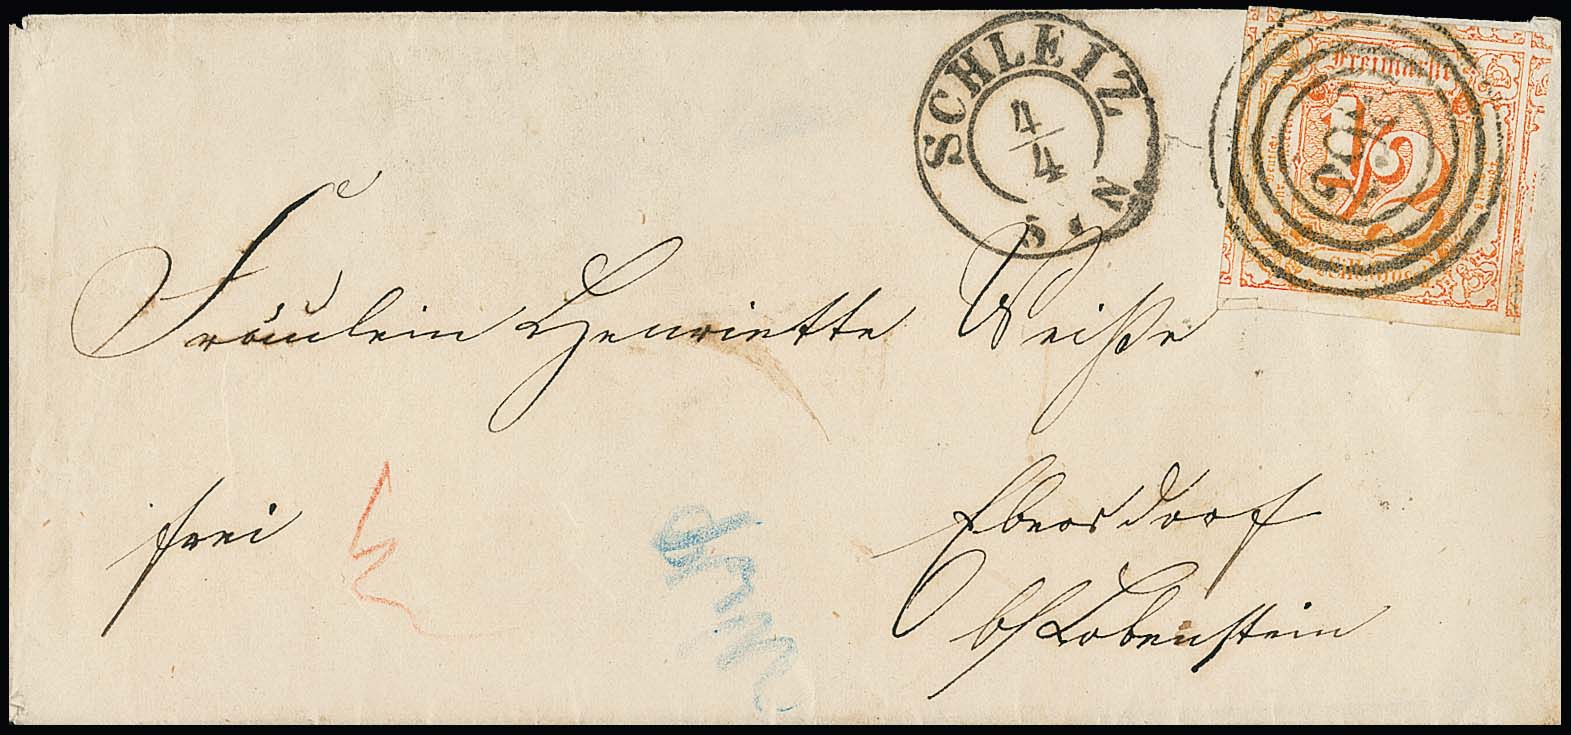 SCHLEIZ
4
4
5 - N
Freimarke
1/2
202
Silb. Grosch.
Fräulein Henriette Weiße
frei
Ebersdorf
b/Lobenstein